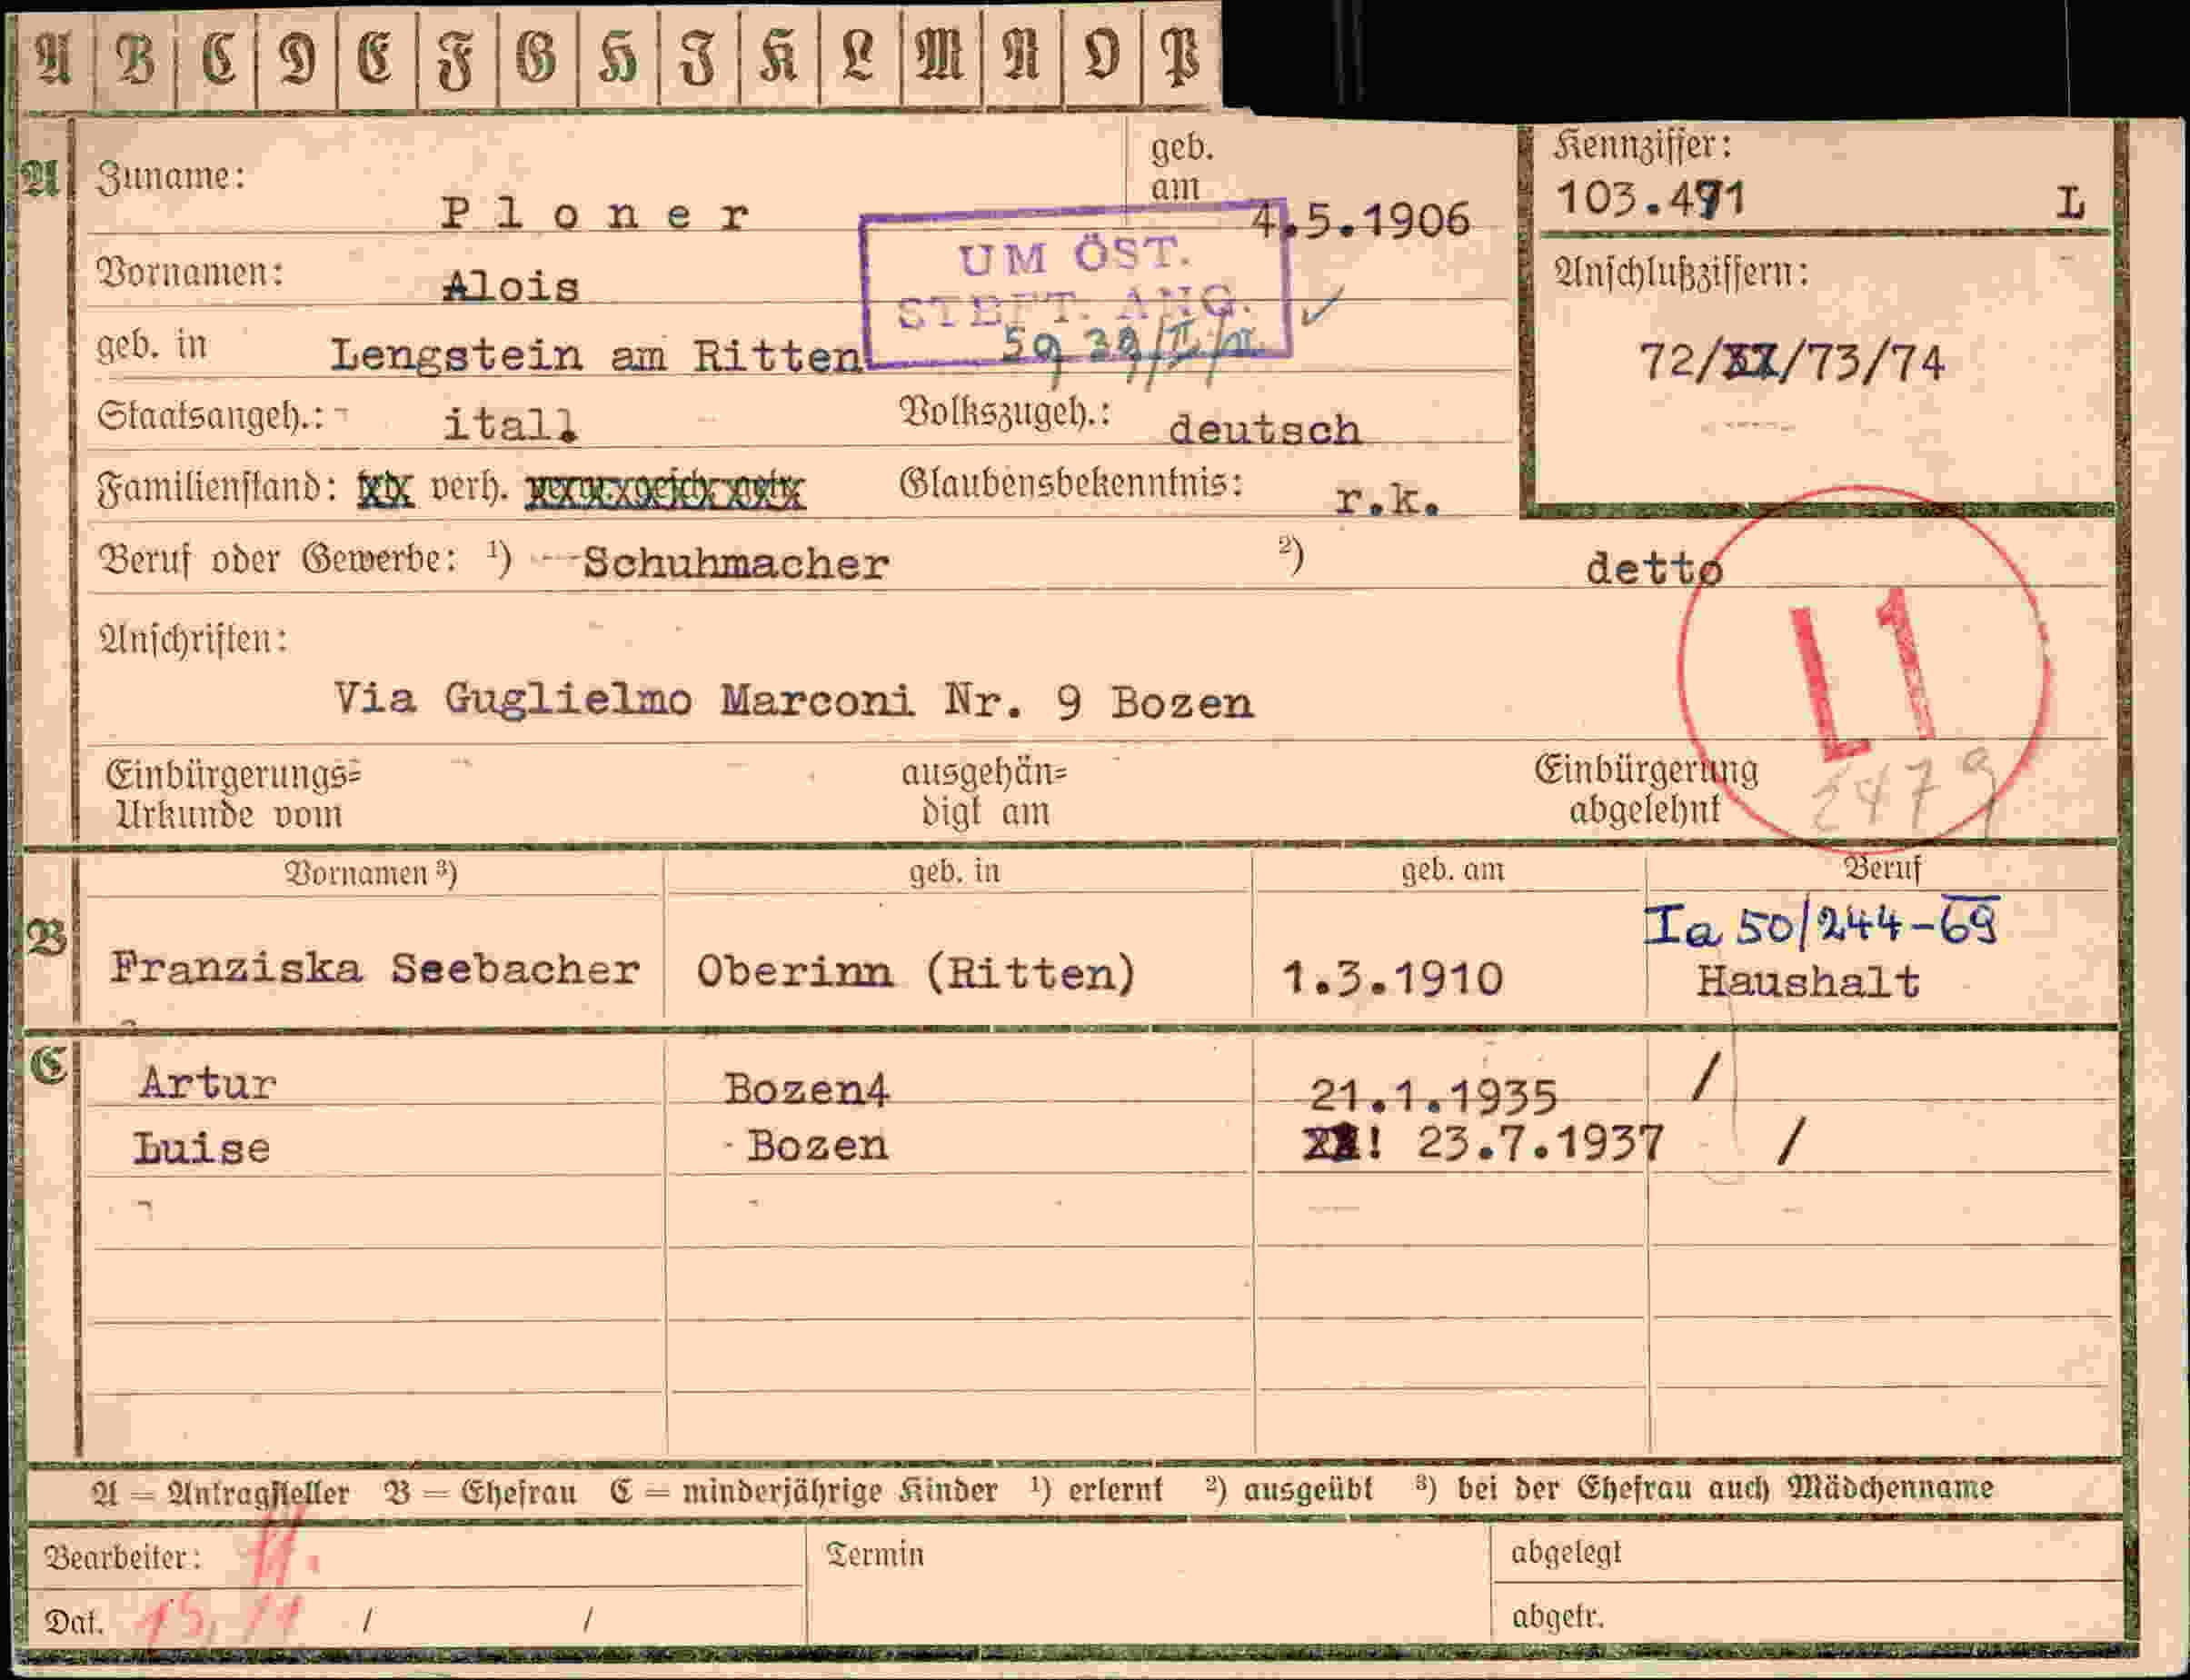 A B C D E F G H I K L M N O P
A Zuname: Ploner geb. am 4.5.1906
Kennziffer: 103.471 L
Vornamen: Alois
UM ÖST.
STBFT. ANG.
Anschlußziffern:
72/73/74
geb. in Lengstein am Ritten
Staatsangeh.: itall. Volkszugeh.: deutsch
Familienstand: verh. Glaubensbekenntnis: r.k.
Beruf oder Gewerbe: ¹) Schuhmacher ²) detto
L1
Anschriften:
Via Guglielmo Marconi Nr. 9 Bozen
2479
Einbürgerungs= Urkunde vom ausgehän= digt am Einbürgerung abgelehnt
Vornamen ³) geb. in geb. am Beruf
Ia 50/244-69
B Franziska Seebacher Oberinn (Ritten) 1.3.1910 Haushalt
C Artur Bozen4 21.1.1935 /
Luise Bozen ! 23.7.1937 /
A = Antragsteller B = Ehefrau C = minderjährige Kinder ¹) erlernt ²) ausgeübt ³) bei der Ehefrau auch Mädchenname
Bearbeiter: Termin abgelegt
Dat. / / abgetr.